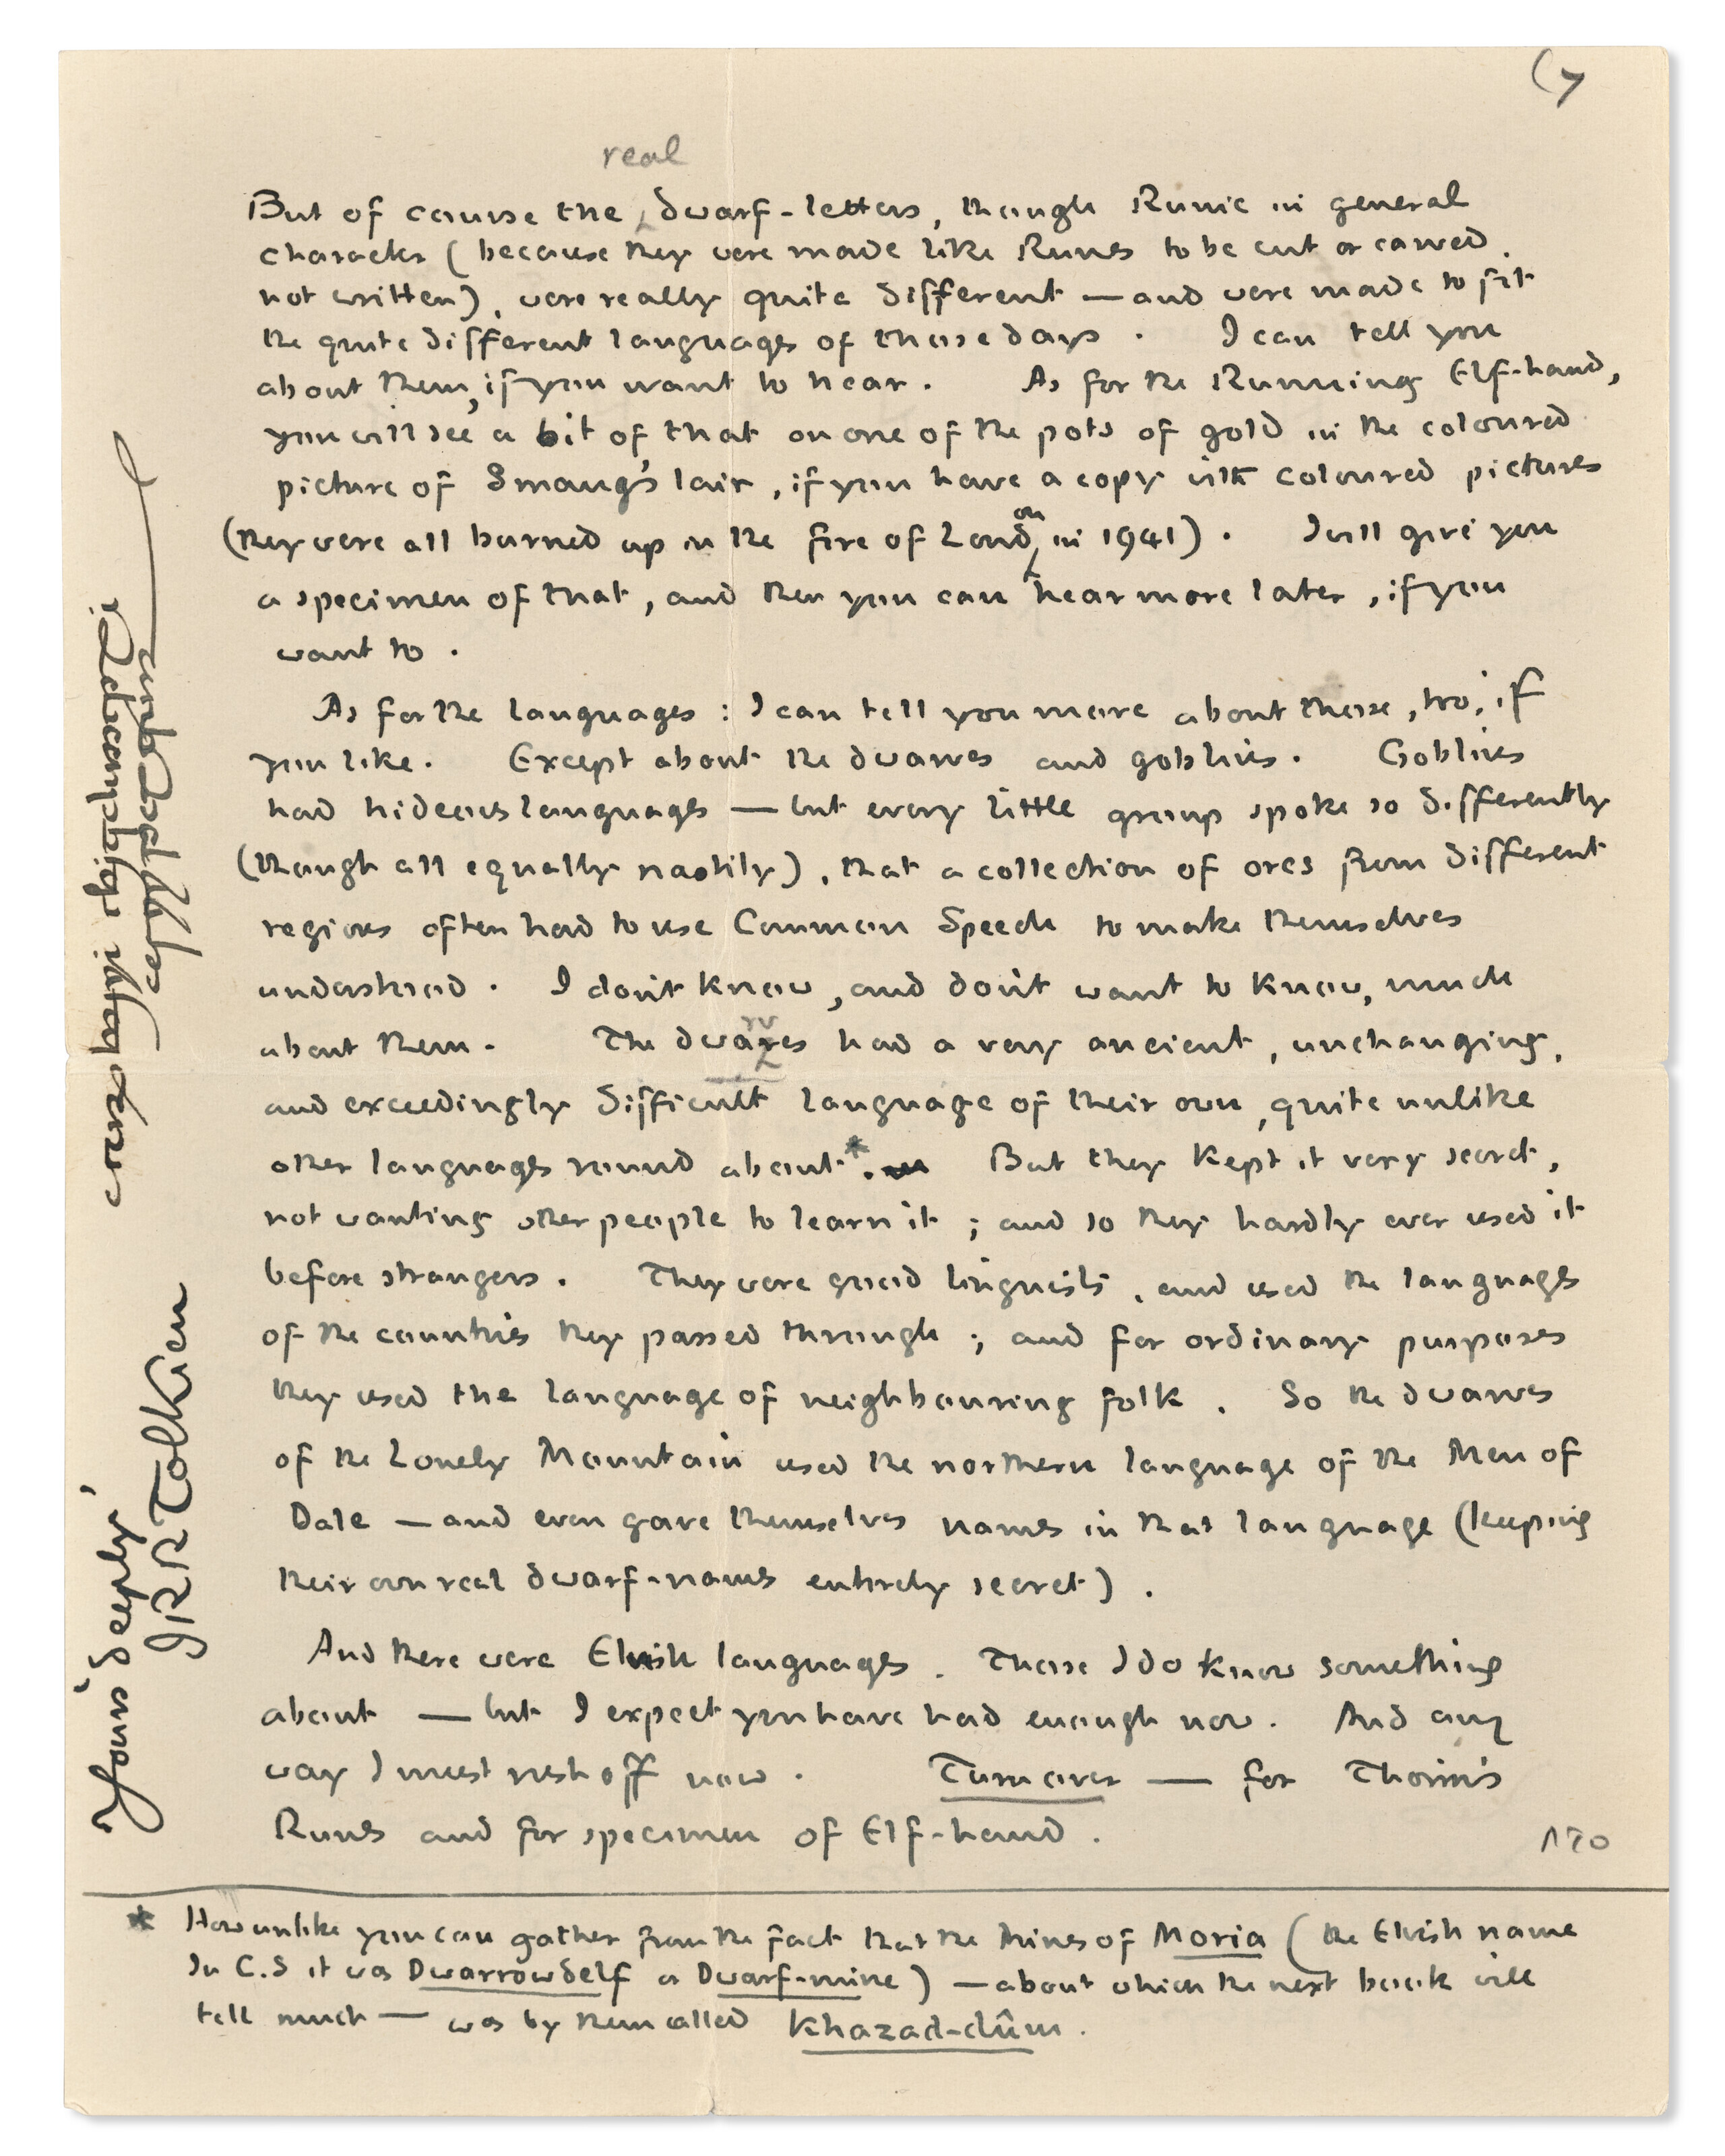 (7
But of course the real dwarf-letters, though Runic in general
character (because they were made like Runes to be cut or carved,
not written), were really quite different — and were made to fit
the quite different languages of those days. I can tell you
about them, if you want to hear. As for the Running Elf-hand,
you will see a bit of that on one of the pots of gold in the coloured
picture of Smaug's lair, if you have a copy with coloured pictures
(they were all burned up in the fire of London in 1941). I will give you
a specimen of that, and then you can hear more later, if you
want to.
As for the languages: I can tell you more about those, too, if
you like. Except about the dwarves and goblins. Goblins
had hideous languages — but every little group spoke so differently
(though all equally nastily), that a collection of orcs from different
regions often had to use Common Speech to make themselves
understood. I don't know, and don't want to know, much
about them. The dwarves had a very ancient, unchanging,
and exceedingly difficult language of their own, quite unlike
other languages round about*. But they kept it very secret,
not wanting other people to learn it; and so they hardly ever used it
before strangers. They were good linguists, and used the languages
of the countries they passed through; and for ordinary purposes
they used the language of neighbouring folk. So the dwarves
of the Lonely Mountain used the northern language of the Men of
Dale — and even gave themselves names in that language (keeping
their own real dwarf-names entirely secret).
And there were Elvish languages. Those I do know something
about — but I expect you have had enough now. And any
way I must rush off now. Turn over — for Thorin's
Runes and for specimen of Elf-hand.
PTO
* How unlike you can gather from the fact that the Mines of Moria (the Elvish name
In C.S it was Dwarrowdelf or Dwarf-mine) — about which the next book will
tell much — was by them called Khazad-dûm.
Yours deeply,
JRR Tolkien